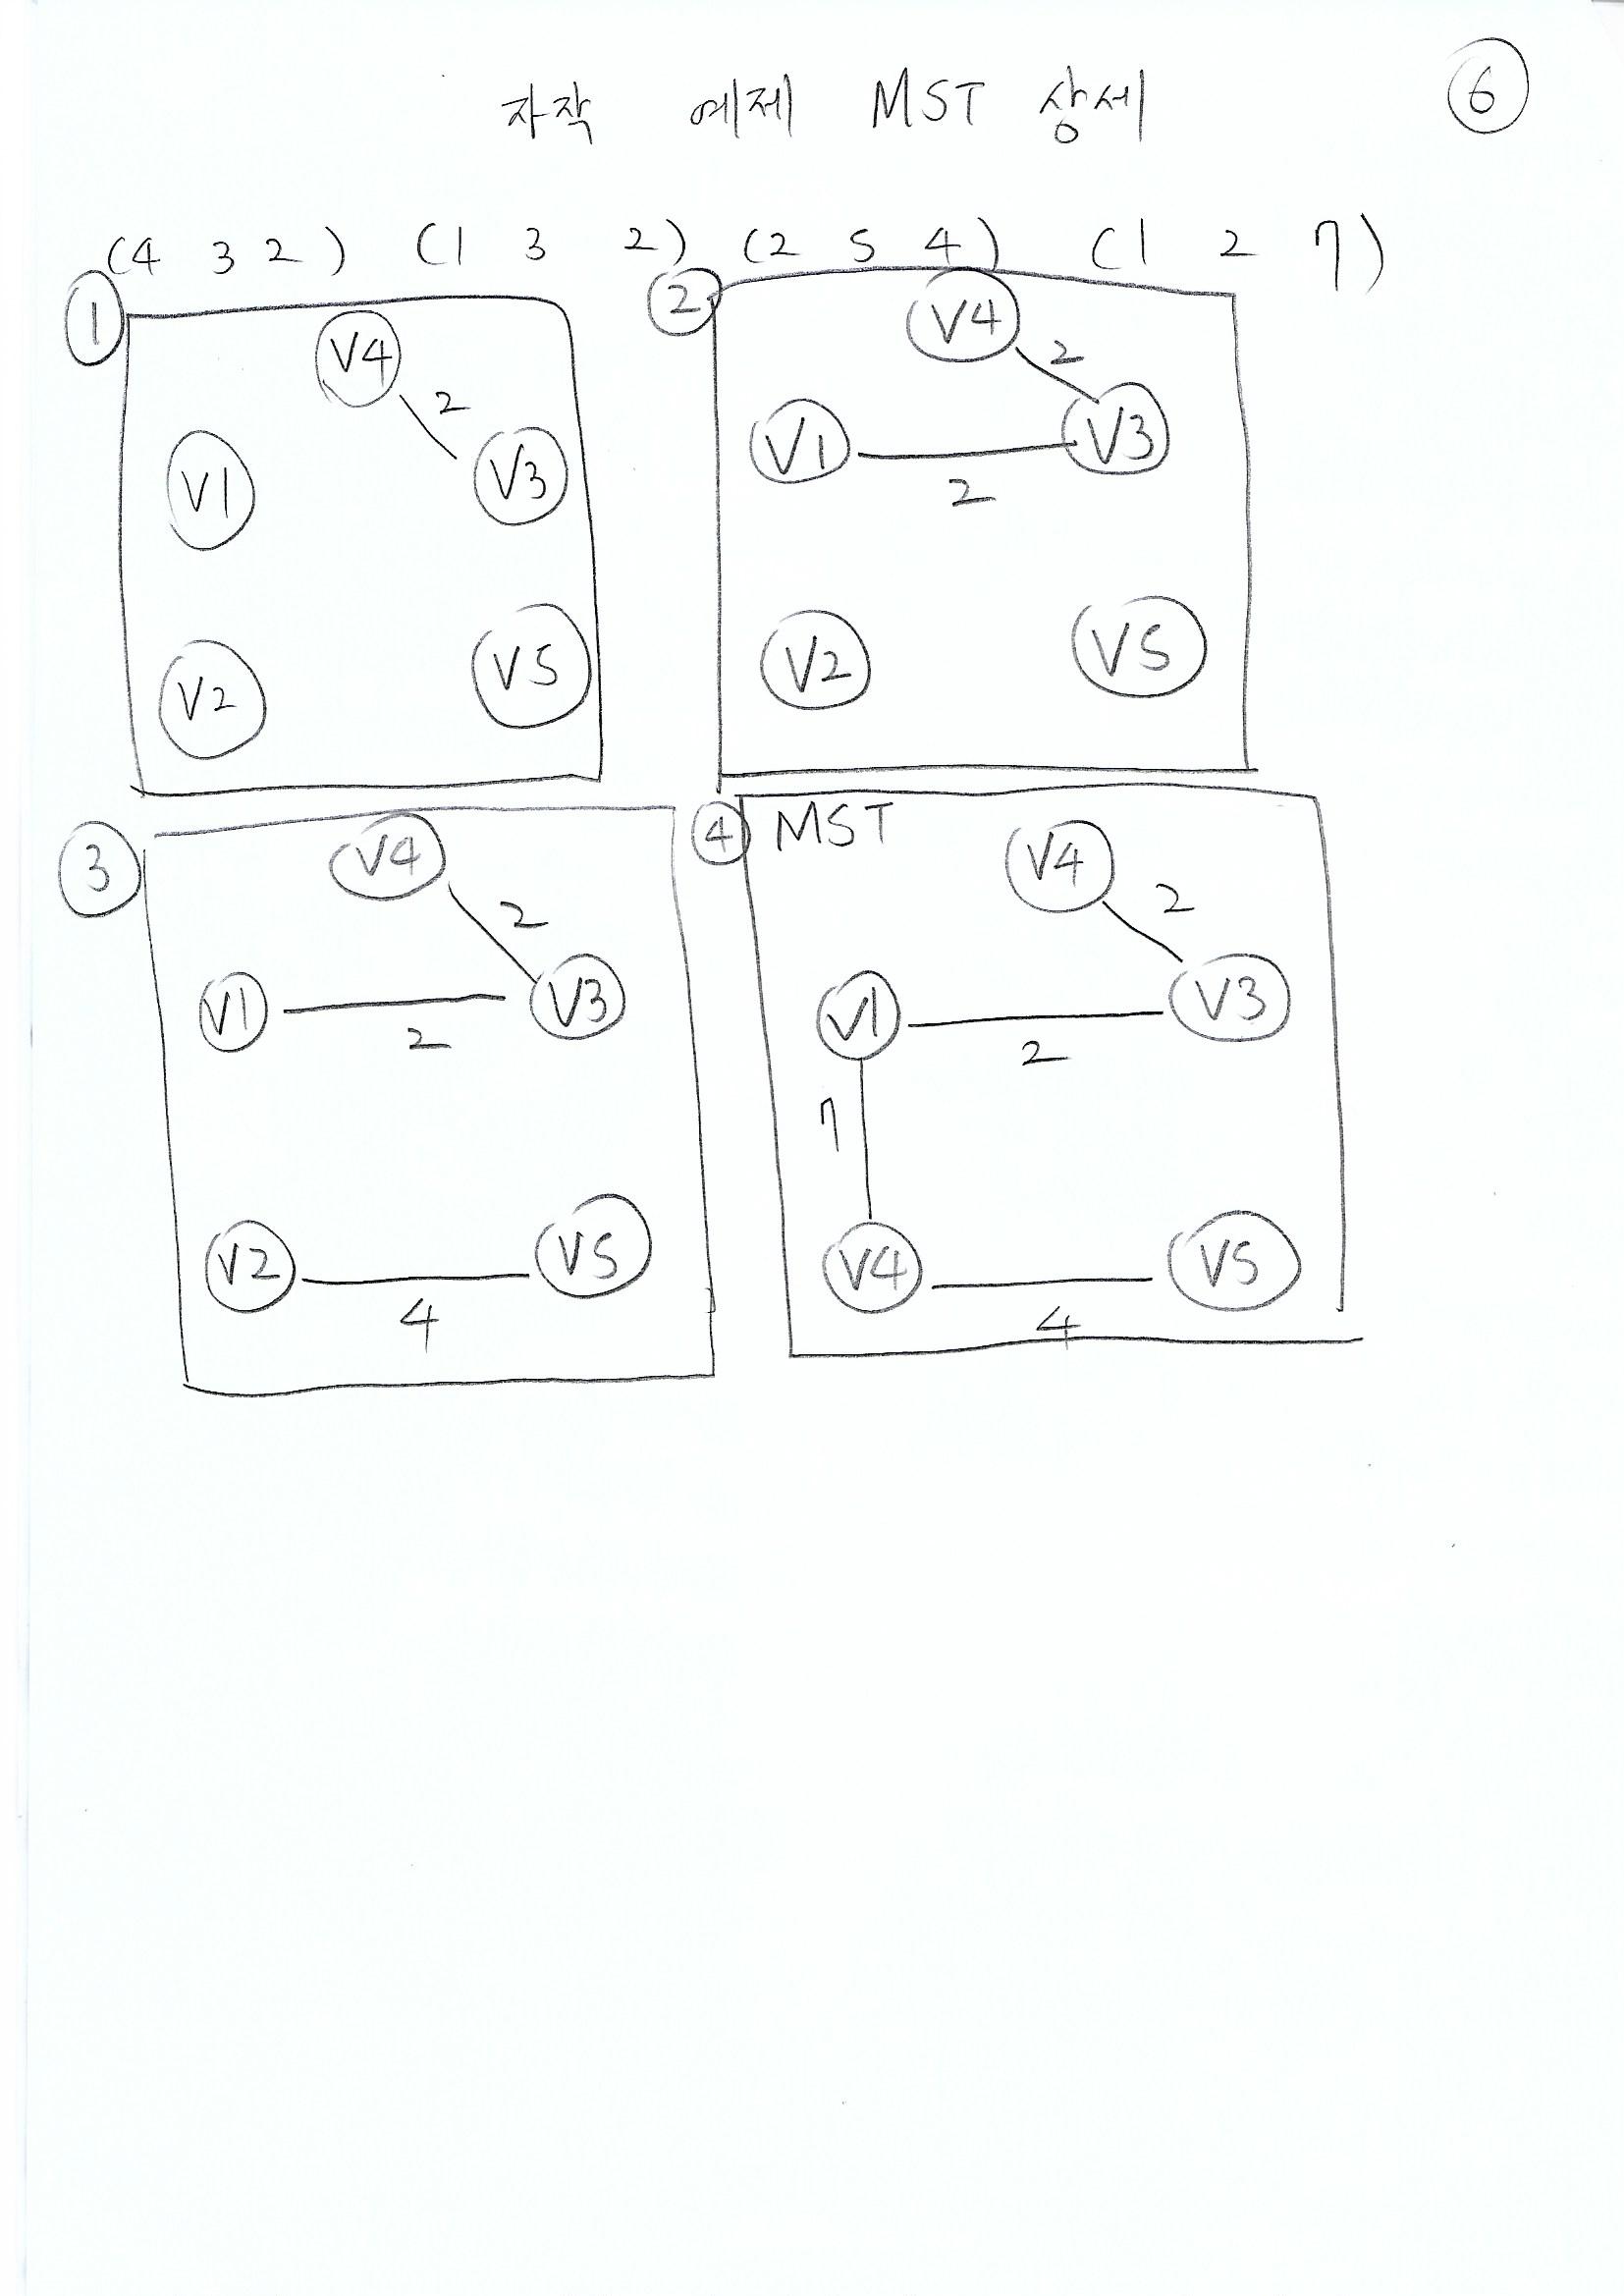 자작 예제 MST 상세 ⑥
(4 3 2) (1 3 2) (2 5 4) (1 2 7)
①
V4
2
V1
V3
V2
V5
②
V4
2
V1
V3
2
V2
V5
③
V4
2
V1
V3
2
V2
V5
4
④ MST
V4
2
V1
V3
2
7
V4
V5
4